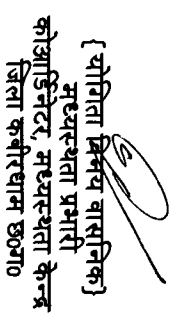 { योगिता विनय वासनिक}
मध्यस्थता प्रभारी
कोआर्डिनेटर, मध्यस्थता केन्द्र
जिला कबीरधाम छ0ग0